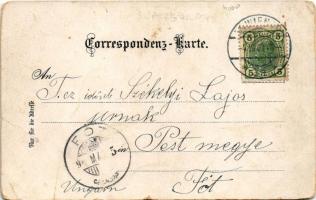 Correspondenz-Karte.
An
Tez. idősb Székelyi Lajos
úrnak
Pest megye
Ungarn Fót
Nur für die Adresse
WIEN
5 5
FÓT